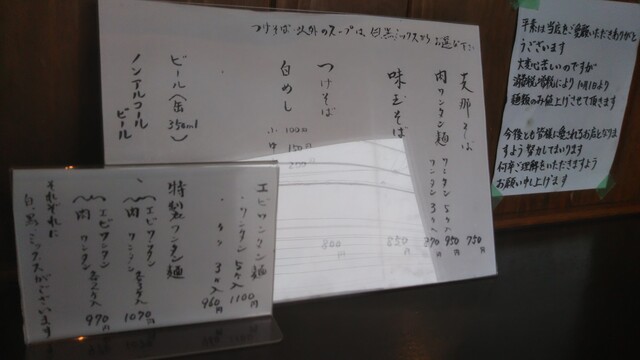 つけそば以外のスープは、白黒ミックスからお選び下さい
支那そば 750円
肉ワンタン麺 ワンタン5ヶ入 950円
ワンタン3ヶ入 870
味玉そば 850円
つけそば 800円
白めし 小 100円
中 150円
200
ビール(缶350ml)
ノンアルコールビール
エビワンタン麺
〃 ワンタン5ヶ入 1100円
3ヶ入 960円
特製ワンタン麺
エビワンタン
肉ワンタン 1070円
エビワンタン
肉ワンタン 970円
それぞれに
白黒ミックスがございます
平素は当店をご愛顧いただきありがと
うございます
大変心苦しいのですが
消費税増税により10月1日より
麺類のみ値上げさせて頂きます
今後とも皆様に愛されるお店となりま
すよう努力してまいります
何卒ご理解をいただきますよう
お願い申し上げます